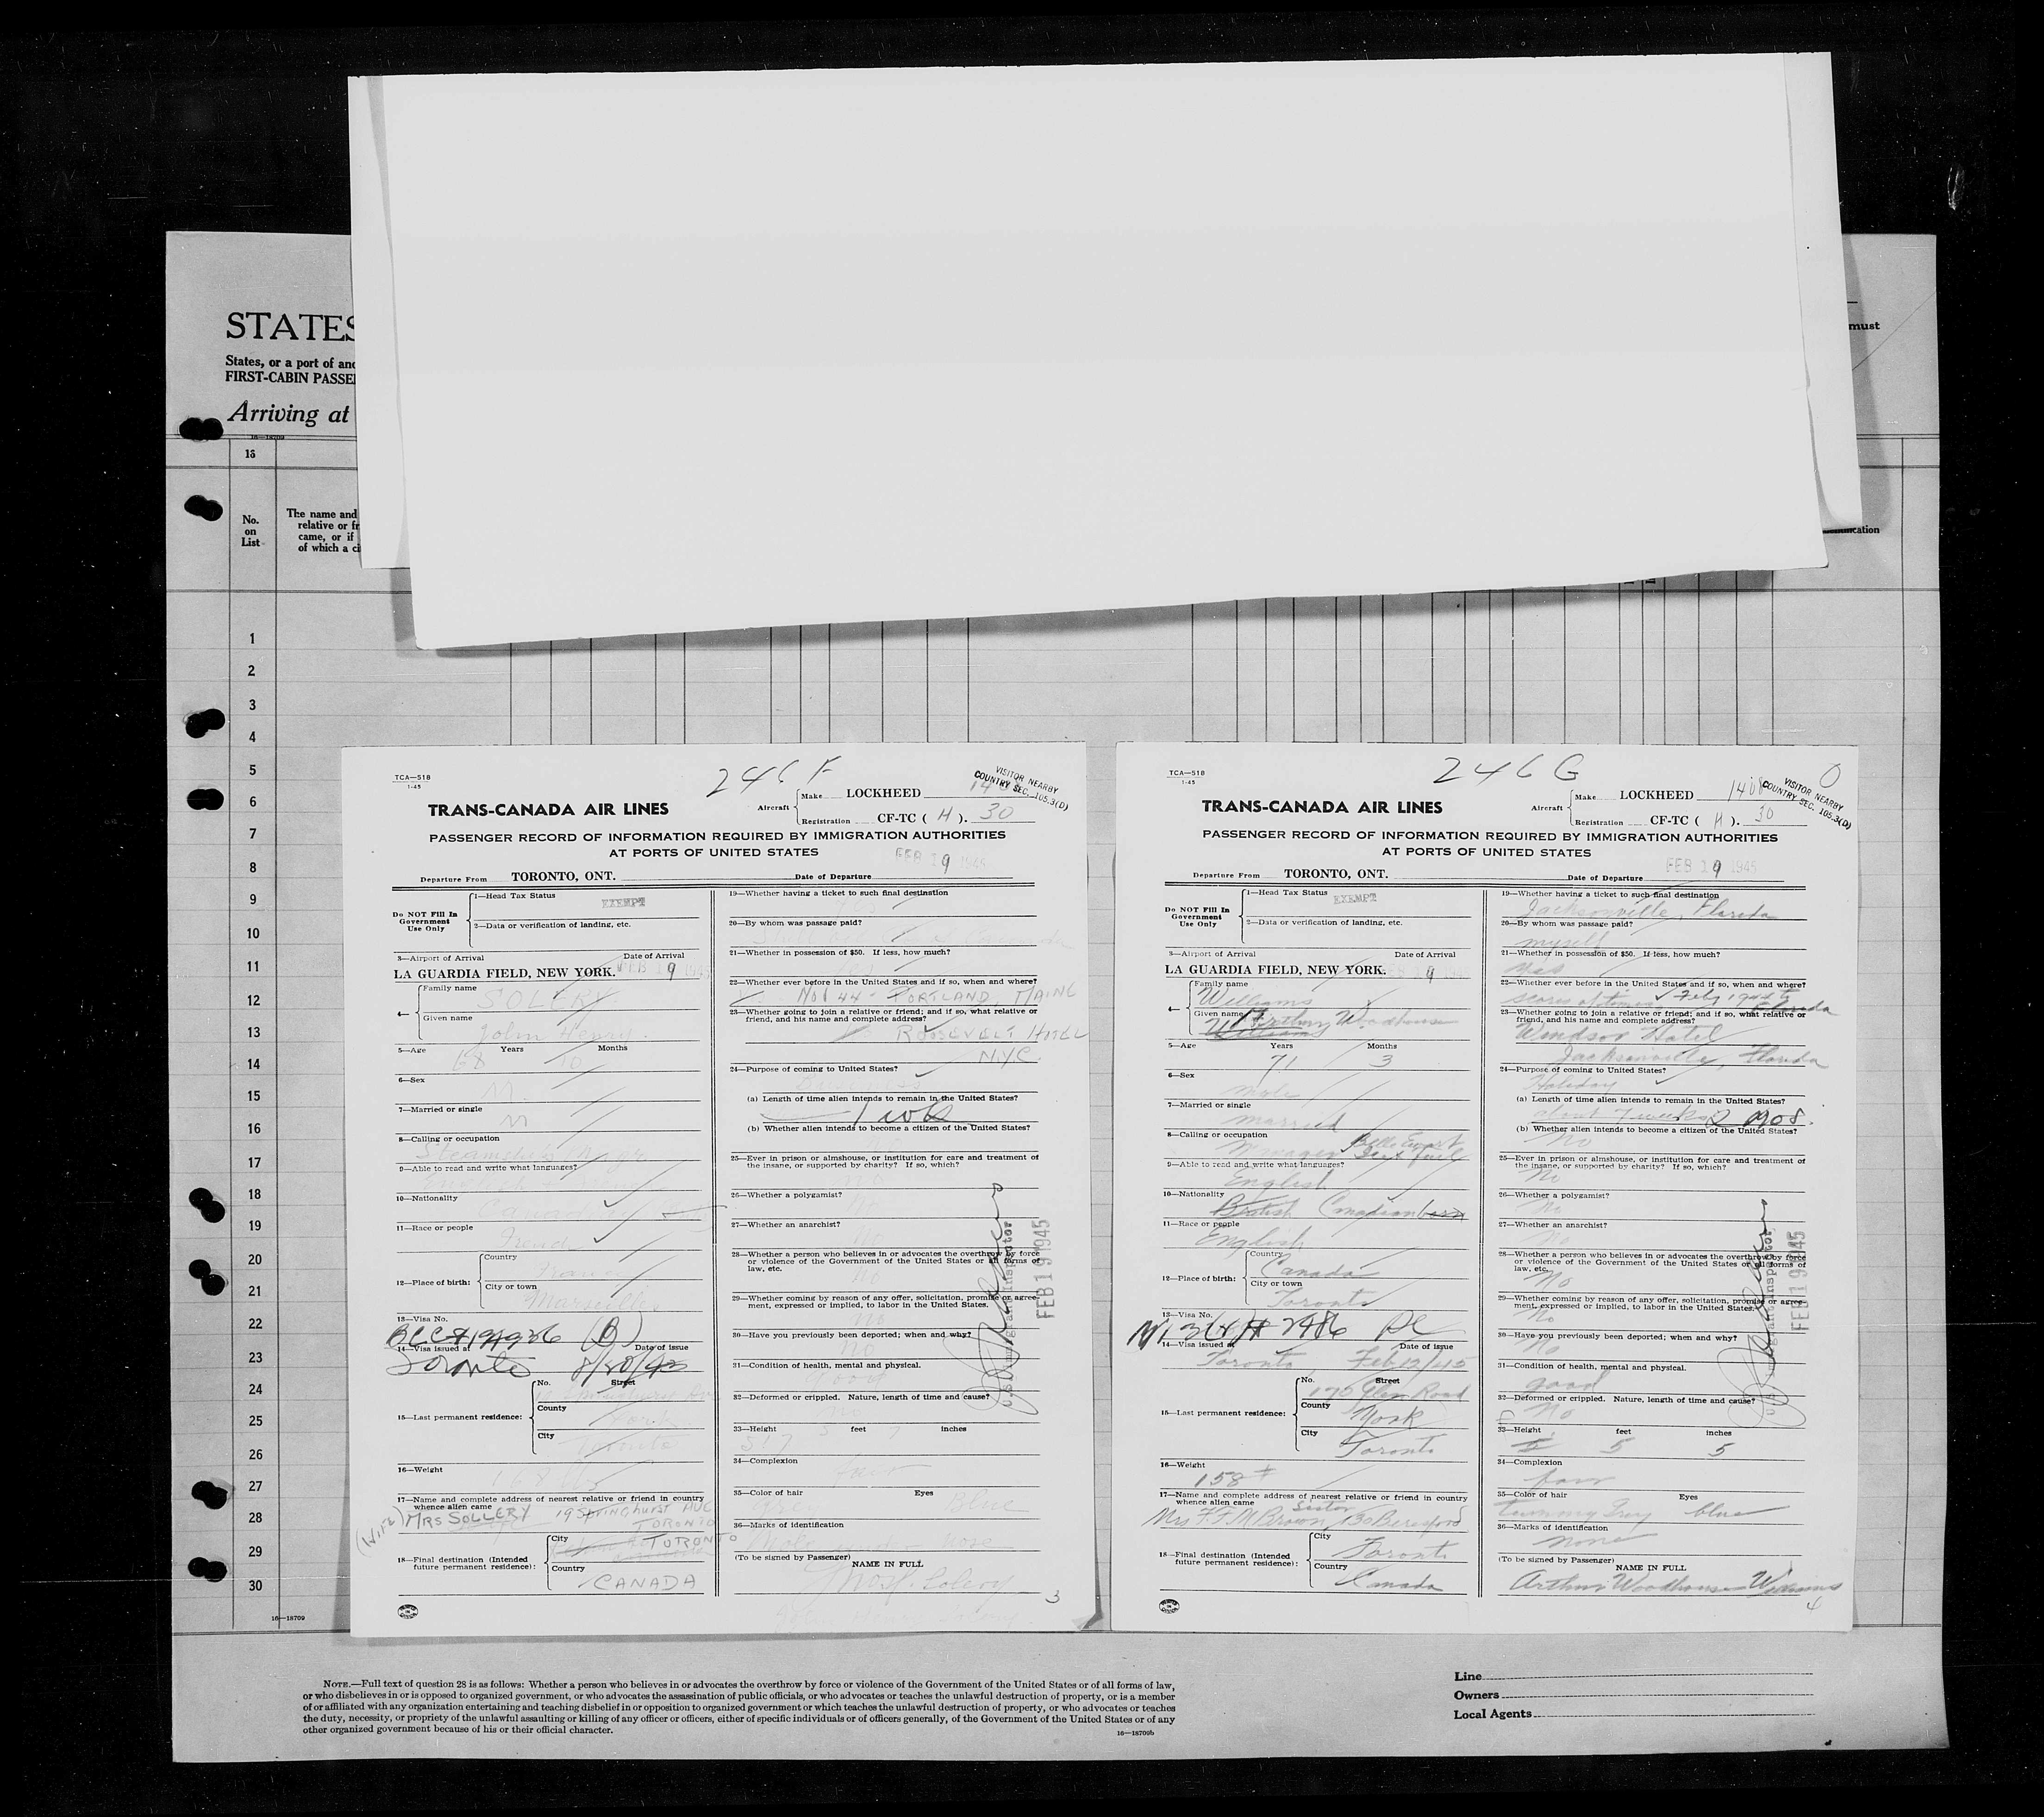 STATES
States, or a port of
FIRST-CABIN
Arriving at
must
16—18709
18
No.
on
List
The name and
relative or
came, or if
of which a
1
2
3
4
5
6
7
8
9
10
11
12
13
14
15
16
17
18
19
20
21
22
23
24
25
26
27
28
29
30
16—18709
TCA—518
1-45
246 F
VISITOR NEARBY
COUNTRY SEC. 105.3(D)
TRANS-CANADA AIR LINES
Aircraft
Make LOCKHEED
Registration CF-TC ( H ). 30
PASSENGER RECORD OF INFORMATION REQUIRED BY IMMIGRATION AUTHORITIES
AT PORTS OF UNITED STATES
FEB 19 1945
Departure From TORONTO, ONT. Date of Departure
Do NOT Fill In
Government
Use Only
1—Head Tax Status
EXEMPT
2—Data or verification of landing, etc.
3—Airport of Arrival Date of Arrival
LA GUARDIA FIELD, NEW YORK. FEB 19 1945
4—
Family name
SOLERY
Given name
John Henry
5—Age Years Months
68 10
6—Sex
M
7—Married or single
M
8—Calling or occupation
Steamship Mgr.
9—Able to read and write what languages?
10—Nationality
Canadian
11—Race or people
French
12—Place of birth:
Country
France
City or town
Marseille
13—Visa No.
(B)
14—Visa issued at Date of issue
Toronto 8/30/43
15—Last permanent residence:
No. Street
County
York
City
Toronto
16—Weight
17—Name and complete address of nearest relative or friend in country
whence alien came
(WIFE) MRS SOLLERY
TORONTO
18—Final destination (Intended
future permanent residence):
City
TORONTO
Country
CANADA
19—Whether having a ticket to such final destination
20—By whom was passage paid?
21—Whether in possession of $50. If less, how much?
22—Whether ever before in the United States and if so, when and where?
Nov 44 - PORTLAND, MAINE
23—Whether going to join a relative or friend; and if so, what relative or
friend, and his name and complete address?
ROOSEVELT HOTEL
N.Y.C.
24—Purpose of coming to United States?
Business
(a) Length of time alien intends to remain in the United States?
1 wk
(b) Whether alien intends to become a citizen of the United States?
25—Ever in prison or almshouse, or institution for care and treatment of
the insane, or supported by charity? If so, which?
26—Whether a polygamist?
No
27—Whether an anarchist?
No
28—Whether a person who believes in or advocates the overthrow by force
or violence of the Government of the United States or all forms of
law, etc.
No
29—Whether coming by reason of any offer, solicitation, promise or agree-
ment, expressed or implied, to labor in the United States.
No
30—Have you previously been deported; when and why?
No
31—Condition of health, mental and physical.
Good
32—Deformed or crippled. Nature, length of time and cause?
33—Height feet inches
5 7
34—Complexion
fair
35—Color of hair Eyes
Blue
36—Marks of identification
(To be signed by Passenger)
NAME IN FULL
3
U.S. Immigrant Inspector
FEB 19 1945
TCA—518
1-45
246 G
0
VISITOR NEARBY
COUNTRY SEC. 105.3(D)
TRANS-CANADA AIR LINES
Aircraft
Make LOCKHEED 1408
Registration CF-TC ( H ). 30
PASSENGER RECORD OF INFORMATION REQUIRED BY IMMIGRATION AUTHORITIES
AT PORTS OF UNITED STATES
FEB 19 1945
Departure From TORONTO, ONT. Date of Departure
Do NOT Fill In
Government
Use Only
1—Head Tax Status
EXEMPT
2—Data or verification of landing, etc.
3—Airport of Arrival Date of Arrival
LA GUARDIA FIELD, NEW YORK. FEB 19 1945
4—
Family name
Williams
Given name
Arthur Woodhouse
5—Age Years Months
71 3
6—Sex
Male
7—Married or single
married
8—Calling or occupation
Manager Belle Ewart Ice & Fuel
9—Able to read and write what languages?
English
10—Nationality
British Canadian born
11—Race or people
English
12—Place of birth:
Country
Canada
City or town
Toronto
13—Visa No.
2486
14—Visa issued at Date of issue
Toronto Feb 12/45
15—Last permanent residence:
No. Street
175 Glen Road
County
York
City
Toronto
16—Weight
158 #
17—Name and complete address of nearest relative or friend in country
whence alien came
Sister
Mrs F. F. M Brown, 130 Beresford
18—Final destination (Intended
future permanent residence):
City
Toronto
Country
Canada
19—Whether having a ticket to such final destination
Jacksonville, Florida
20—By whom was passage paid?
myself
21—Whether in possession of $50. If less, how much?
Yes
22—Whether ever before in the United States and if so, when and where?
scores of times Feby 1944 to Florida
23—Whether going to join a relative or friend; and if so, what relative or
friend, and his name and complete address?
Windsor Hotel
Jacksonville, Florida
24—Purpose of coming to United States?
Holiday
(a) Length of time alien intends to remain in the United States?
about 7 weeks 2 mos.
(b) Whether alien intends to become a citizen of the United States?
No
25—Ever in prison or almshouse, or institution for care and treatment of
the insane, or supported by charity? If so, which?
No
26—Whether a polygamist?
No
27—Whether an anarchist?
No
28—Whether a person who believes in or advocates the overthrow by force
or violence of the Government of the United States or all forms of
law, etc.
No
29—Whether coming by reason of any offer, solicitation, promise or agree-
ment, expressed or implied, to labor in the United States.
No
30—Have you previously been deported; when and why?
No
31—Condition of health, mental and physical.
good
32—Deformed or crippled. Nature, length of time and cause?
No
33—Height feet inches
5 5
34—Complexion
fair
35—Color of hair Eyes
Gray blue
36—Marks of identification
none
(To be signed by Passenger)
NAME IN FULL
Arthur Woodhouse Williams
4
U.S. Immigrant Inspector
FEB 19 1945
NOTE.—Full text of question 28 is as follows: Whether a person who believes in or advocates the overthrow by force or violence of the Government of the United States or of all forms of law,
or who disbelieves in or is opposed to organized government, or who advocates the assassination of public officials, or who advocates or teaches the unlawful destruction of property, or is a member
of or affiliated with any organization entertaining and teaching disbelief in or opposition to organized government or which teaches the unlawful destruction of property, or who advocates or teaches
the duty, necessity, or propriety of the unlawful assaulting or killing of any officer or officers, either of specific individuals or of officers generally, of the Government of the United States or of any
other organized government because of his or their official character.
16—18709b
Line
Owners
Local Agents